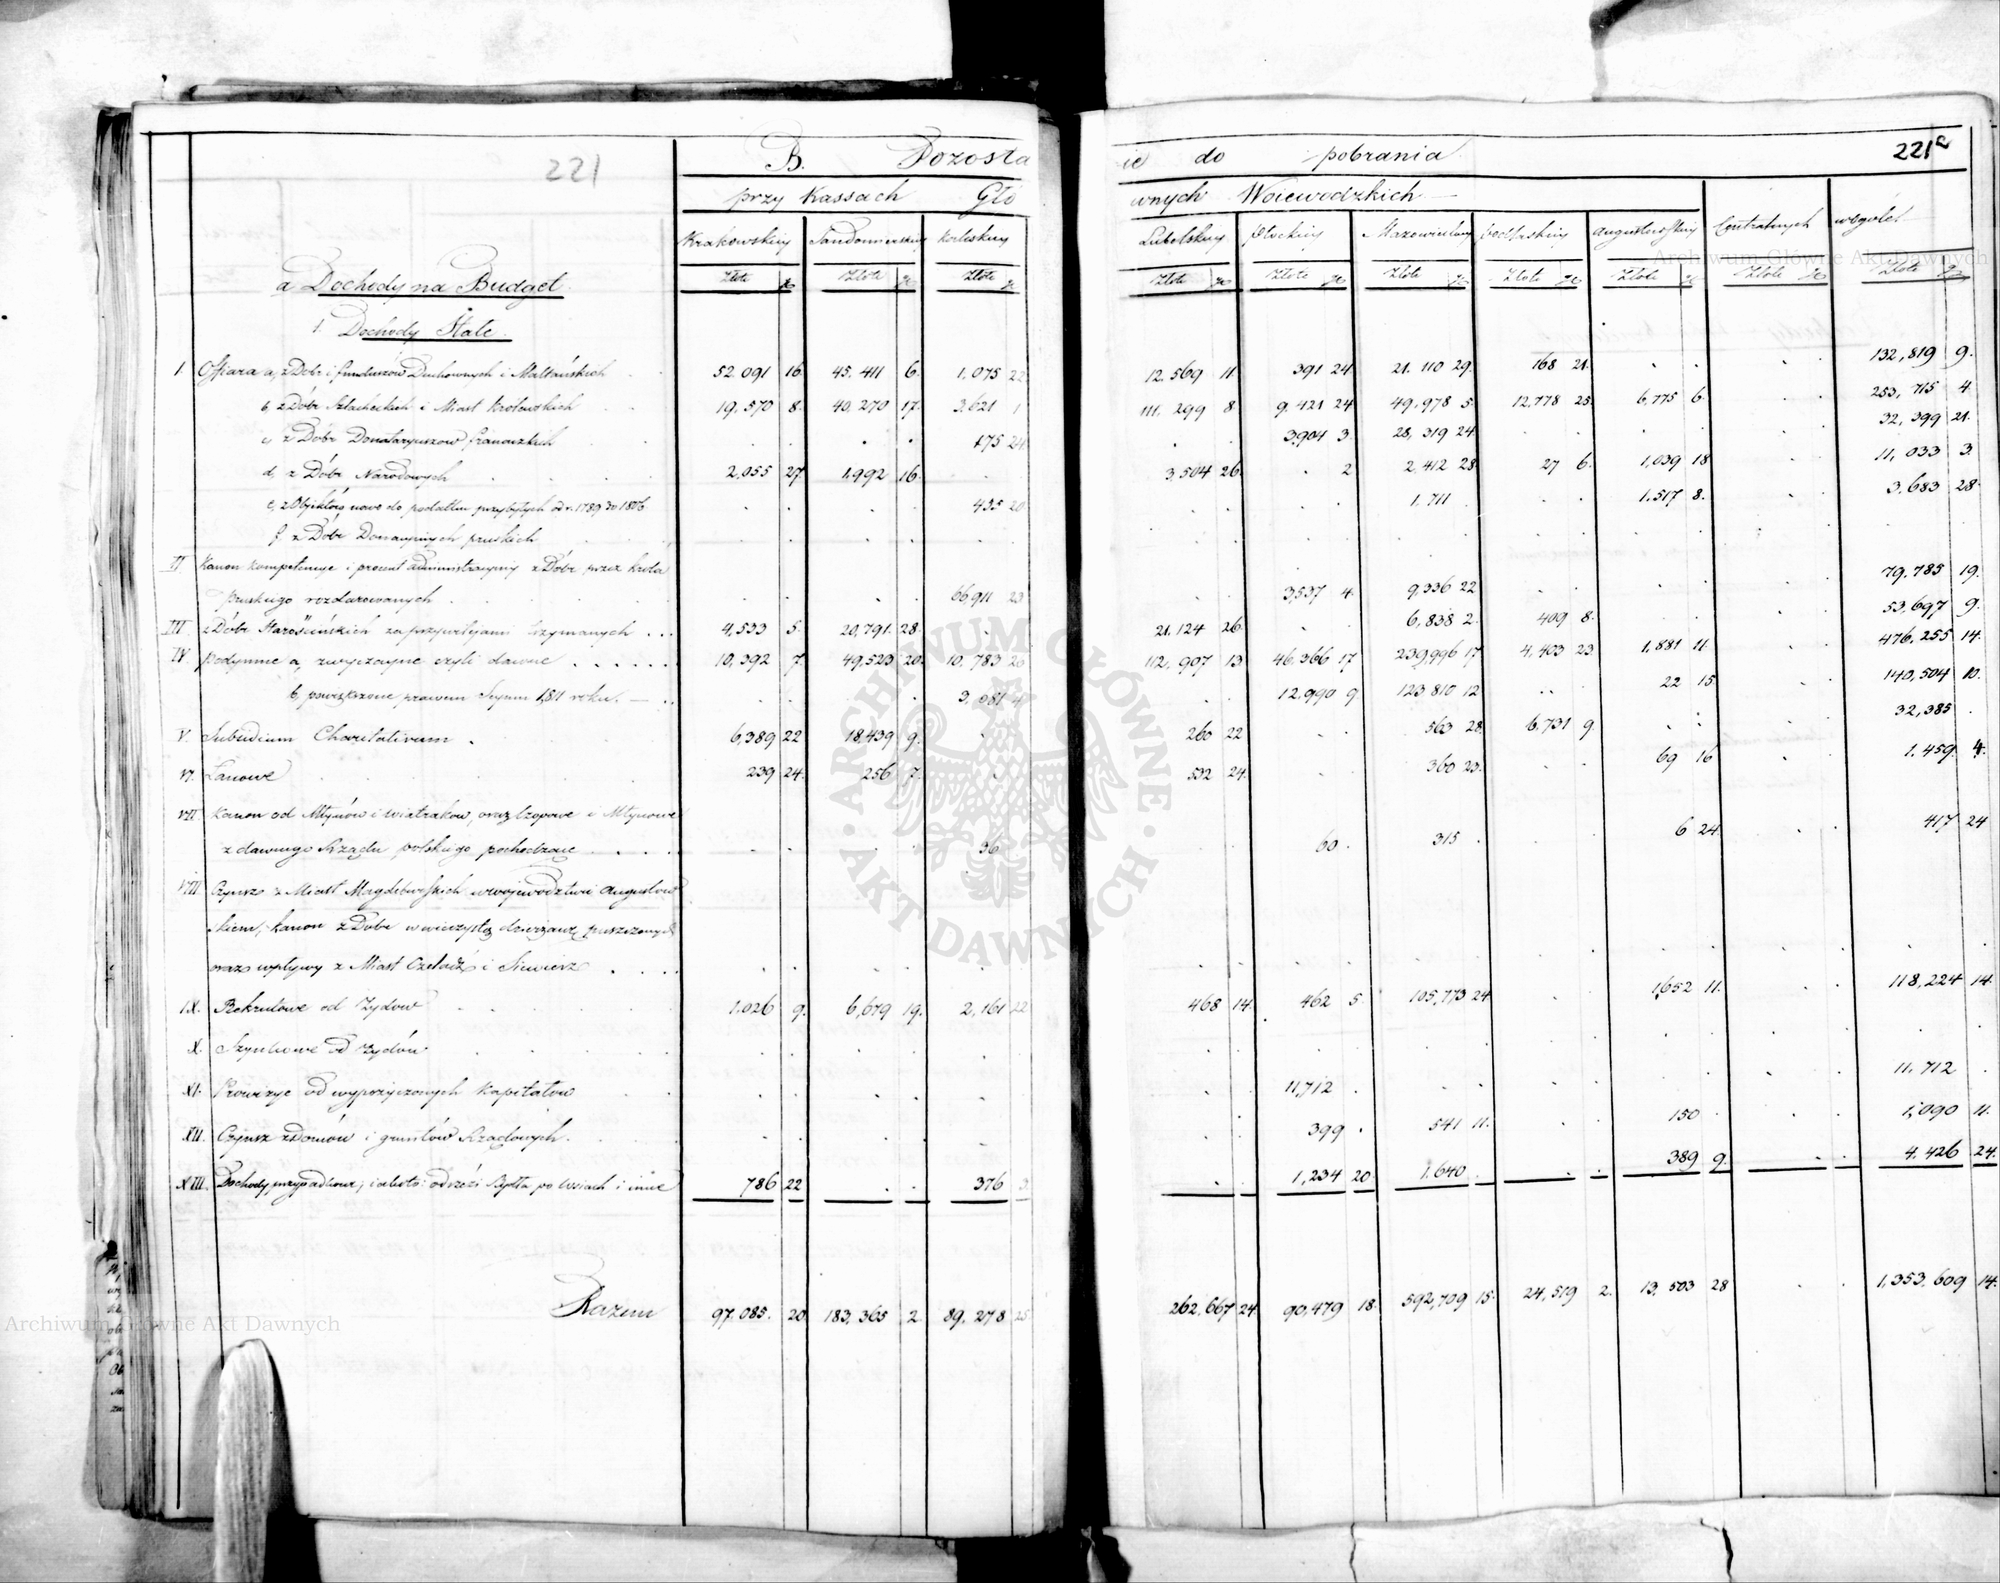 221
221a
B. Pozosta ie do pobrania
przy Kassach Głó wnych Woiewodzkich
Krakowskiey Sandomierskiey Kaliskiey Lubelskiey Płockiey Mazowieckiey Podlaskiey Augustowskiey Centralnych wogóle
Złote gr Złote gr Złote g Złote gr Złote gr Złote gr Złote gr Złote gr Złote gr Złote gr
a Dochody na Budget
1. Dochody Stałe.
I Offiara a, z Dóbr i funduszów Duchownych i Maltańskich 52.091 16 45.411 6. 1,075 22 12.569 11. 391 24 21.110 29. 168 21. 132,819 9.
b, z Dóbr Szlacheckich i Miast Królewskich 19,570 8. 40,270 17. 3.621 1 111.299 8. 9,421 24 49,978 5. 12,778 25. 6,775 6. 253,715 4.
c, z Dóbr Donataryuszów francuzkich 175 24 3,904 3. 28,319 24. 32,399 21.
d, z Dóbr Narodowych 2,055 27. 1.992 16. 3,504 26. 2 2.412 28. 27 6. 1,039 18 11,033 3.
e, z Objektów nowo do podatku przybyłych od r. 1789 do 1806 435 20 1.711 1.517 8. 3.683 28.
f, z Dóbr Donacyinych pruskich
II Kanon kompetencye i procent administracyiny z Dóbr przez króla
pruskiego rozdarowanych 66,911 23 3,537 4. 9,336 22 79,785 19.
III z Dóbr Starościńskich za przywilejami trzymanych 4,533 5. 20,791 28. 21.124 26. 6,838 2. 409 8. 53,697 9.
IV Podymne a, zwyczayne czyli dawne 10,392 7. 49,523 20. 10,783 26 112,907 13 46,366 17 239,996 17 4,403 23. 1,881 11. 476,255 14.
b, powiększone prawem Seymu 1811 roku. 3,681 4 12.990 9 123 810 12 22 15 140,504 10.
V. Subsidium Charitativum 6,389 22 18,439 9. 260 22 563 28. 6,731 9. 32,385
VI. Łanowe 239 24. 256 7. 532 24. 360 23. 69 16 1.459. 4.
VII. Kanon od Młynów i wiatraków, oraz Czopowe i Młynowe
z dawnego Rządu polskiego pochodzące 36 60 315 6 24 417 24
VIII. Czynsz z Miast Magdeburskich w wojewodztwie Augustow
skiem, kanon z Dóbr w wieczystą dzierżawę puszczonych
oraz wpływy z Miast Czeladź i Siewierz
IX. Rekrutowe od Żydów 1.026 9. 6,679 19. 2,161 22 468 14. 462 5. 105,773 24 1,652 11. 118,224 14.
X. Szynkowe od Żydów
XI. Prowizye od wypożyczonych Kapitałów 11,712 11.712
XII. Czynsz z Domów i gruntów Rządowych. 399 541 11. 150 1,090 11.
XIII. Dochody przypadkowe, iakoto: od rzezi Bydła po Wsiach i inne 786 22 376 3 1,234 20. 1.640 389 9. 4.426 24.
Razem 97,085. 20 183,365 2. 89,278 25 262,667 24 90,479 18. 592,709 15. 24,519 2. 13,503 28 1,353,609 14.
ARCHIWUM GŁÓWNE AKT DAWNYCH
Archiwum Główne Akt Dawnych
Archiwum Główne Akt Dawnych